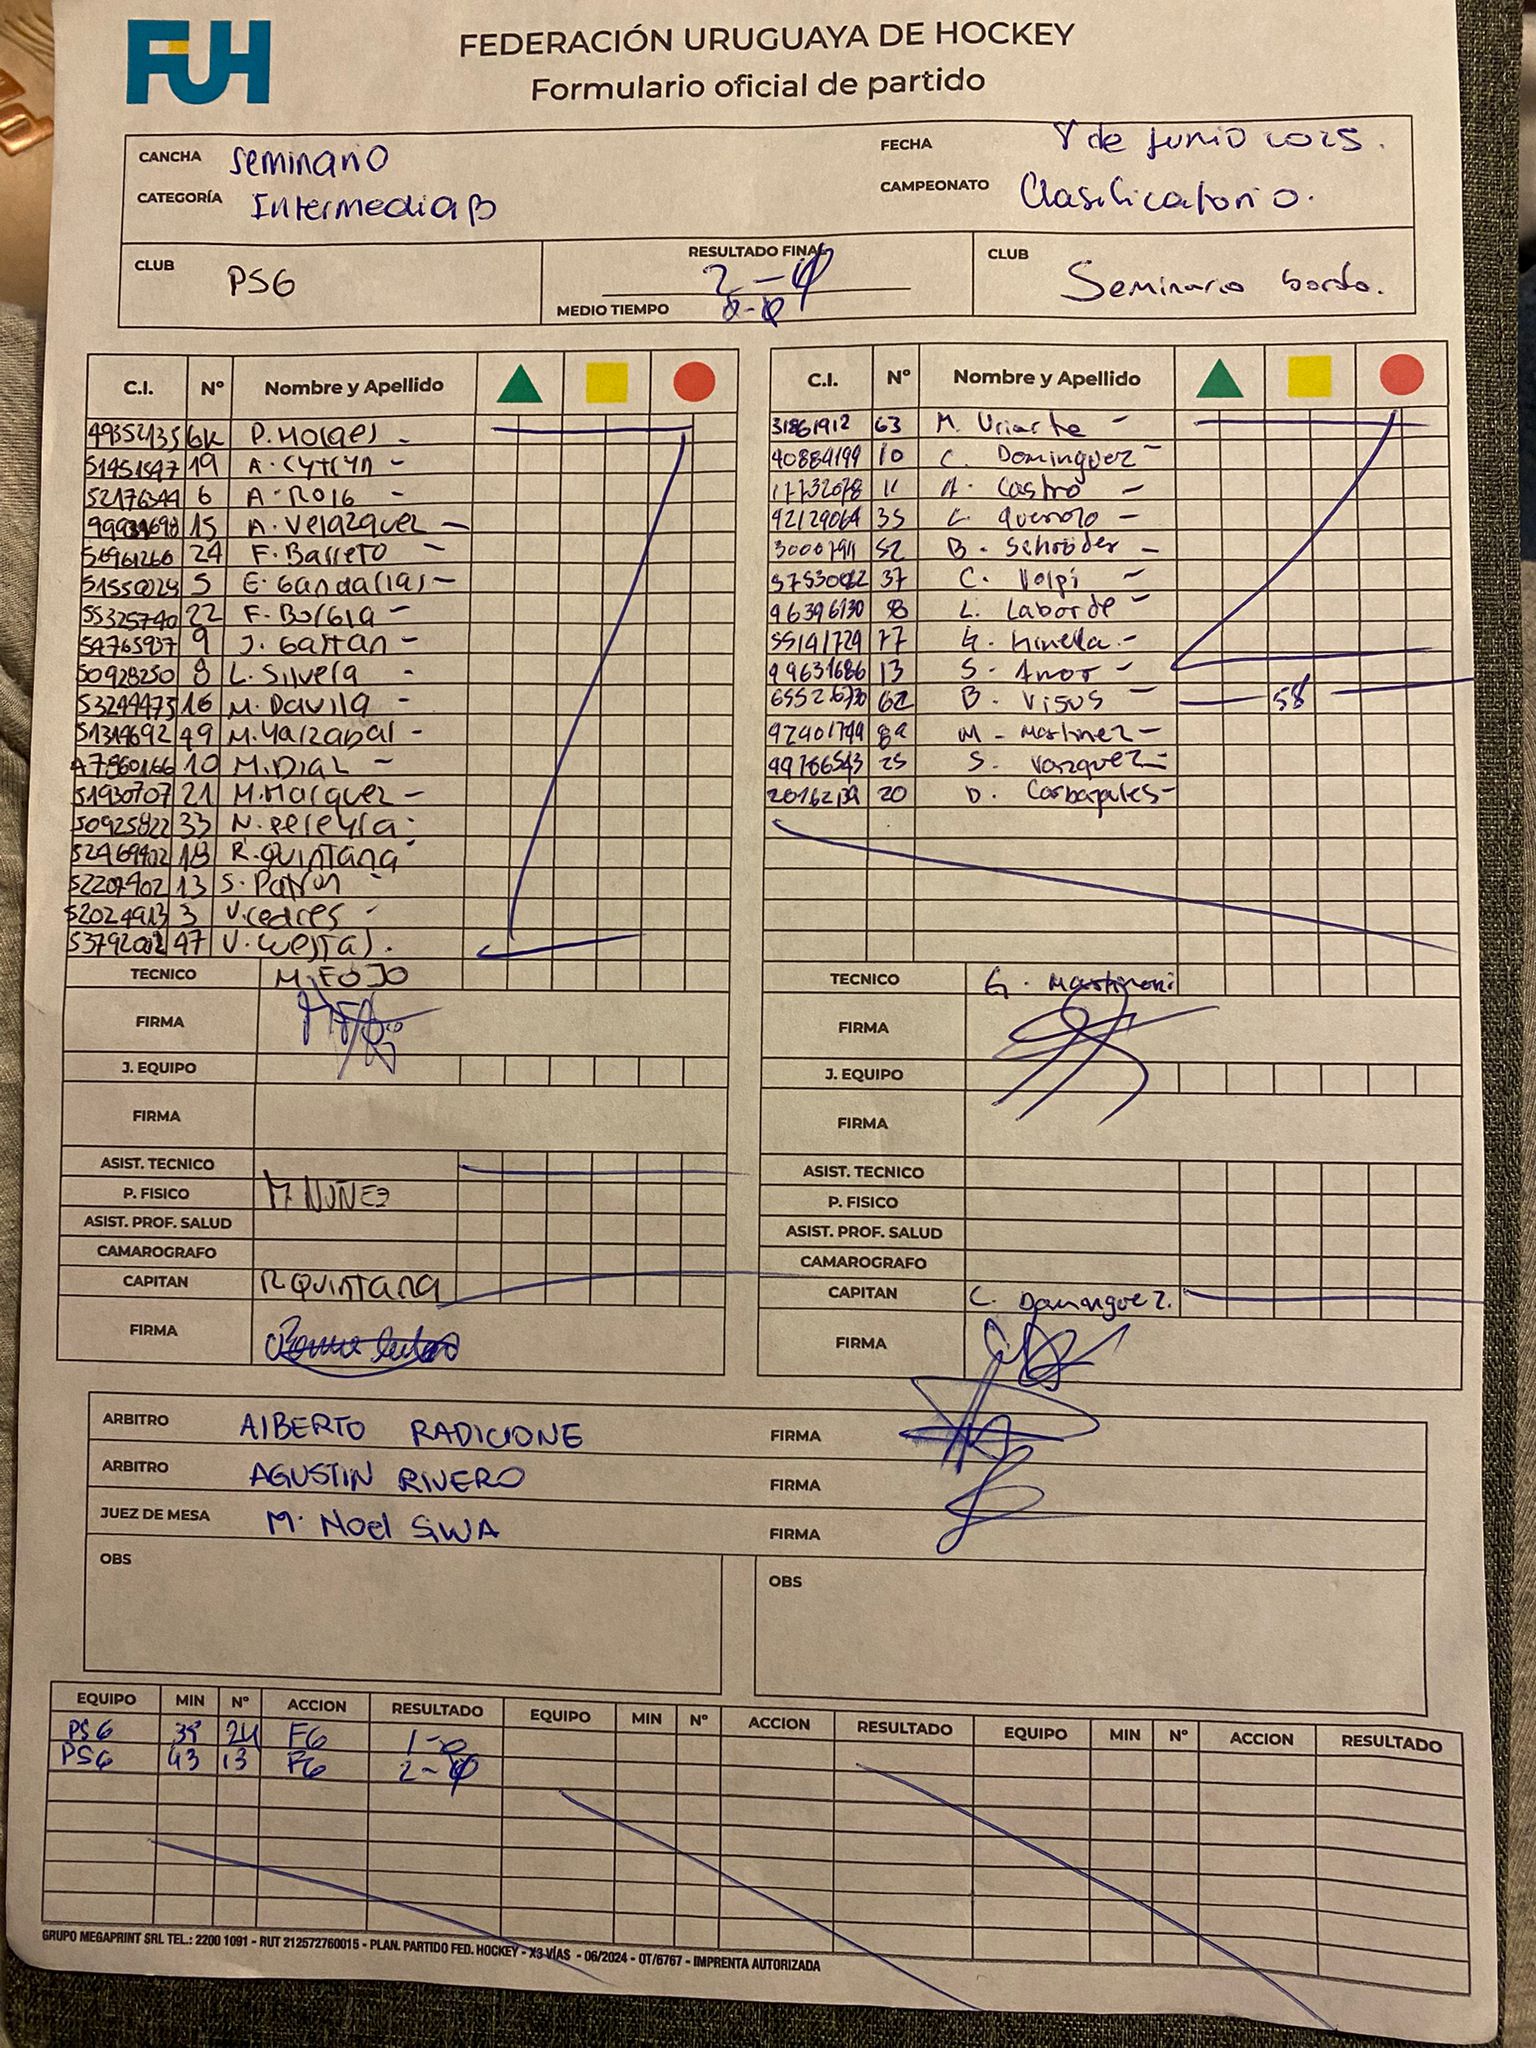 FUH
FEDERACIÓN URUGUAYA DE HOCKEY
Formulario oficial de partido
CANCHA Seminario
FECHA 8 de Junio 2025.
CATEGORÍA Intermedia B
CAMPEONATO Clasificatorio.
CLUB PSG
RESULTADO FINAL 2-0
MEDIO TIEMPO 0-0
CLUB Seminario bordo.
C.I. Nº Nombre y Apellido
49352135 GK P. Morges
51451547 19 A. Cytryn
52176344 6 A. Roig
15 A. Velazquez
56961260 24 F. Barreto
51550029 5 E. Gandarias
55325740 22 F. Borgia
54765937 9 J. Gaitan
50928250 8 L. Silvera
53244475 16 M. Davila
51314692 49 M. Yarzabal
47860166 10 M. Dial
51930707 21 M. Marquez
50925822 33 N. Pereyra
52469402 18 R. Quintana
52207402 13 S. Patron
52024913 3 V. Cedres
47 V. Cuestas.
TECNICO M. FOJO
FIRMA
J. EQUIPO
FIRMA
ASIST. TECNICO
P. FISICO M. NUÑEZ
ASIST. PROF. SALUD
CAMAROGRAFO
CAPITAN R QUINTANA
FIRMA
C.I. Nº Nombre y Apellido
31861912 63 M. Uriarte
40884199 10 C. Dominguez
17732078 11 A. Castro
42129064 35 C. Queirolo
52 B. Schröder
37 C. Volpi
46396130 8 L. Laborde
55141729 77 G.
49631686 13 S. Amor
62 B. Visus 58'
M. Martinez
49786543 25 S. Vazquez
20162139 20 D. Carbajales
TECNICO G. Martinoni
FIRMA
J. EQUIPO
FIRMA
ASIST. TECNICO
P. FISICO
ASIST. PROF. SALUD
CAMAROGRAFO
CAPITAN C. Dominguez.
FIRMA
ARBITRO ALBERTO RADICIONE FIRMA
ARBITRO AGUSTIN RIVERO FIRMA
JUEZ DE MESA M. Noel SILVA FIRMA
OBS
OBS
EQUIPO MIN Nº ACCION RESULTADO EQUIPO MIN Nº ACCION RESULTADO EQUIPO MIN Nº ACCION RESULTADO
PSG 38 24 FG 1-0
PSG 43 13 FG 2-0
GRUPO MEGAPRINT SRL TEL.: 2200 1091 - RUT 212572760015 - PLAN. PARTIDO FED. HOCKEY - X3 VÍAS - 06/2024 - OT/6767 - IMPRENTA AUTORIZADA